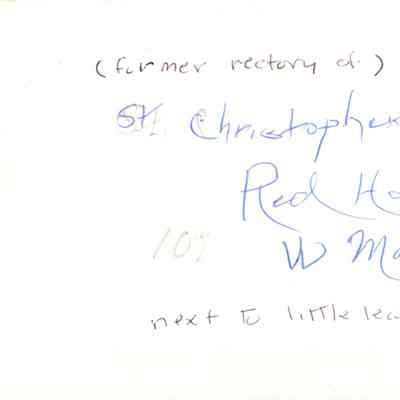 (former rectory of)
St. Christopher
Red Ho
109 W Ma
next to little lea